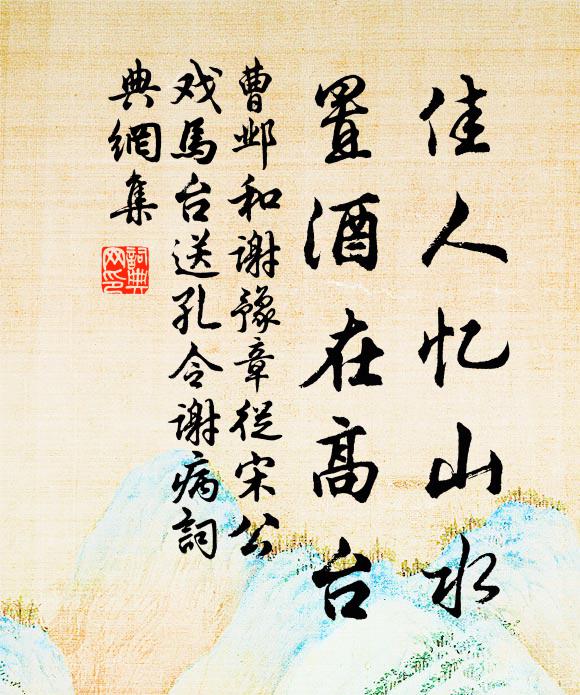 佳人忆山水
置酒在高台
曹邺和谢豫章從宋公
戏馬台送孔令谢病詞
典網集
詞典网印